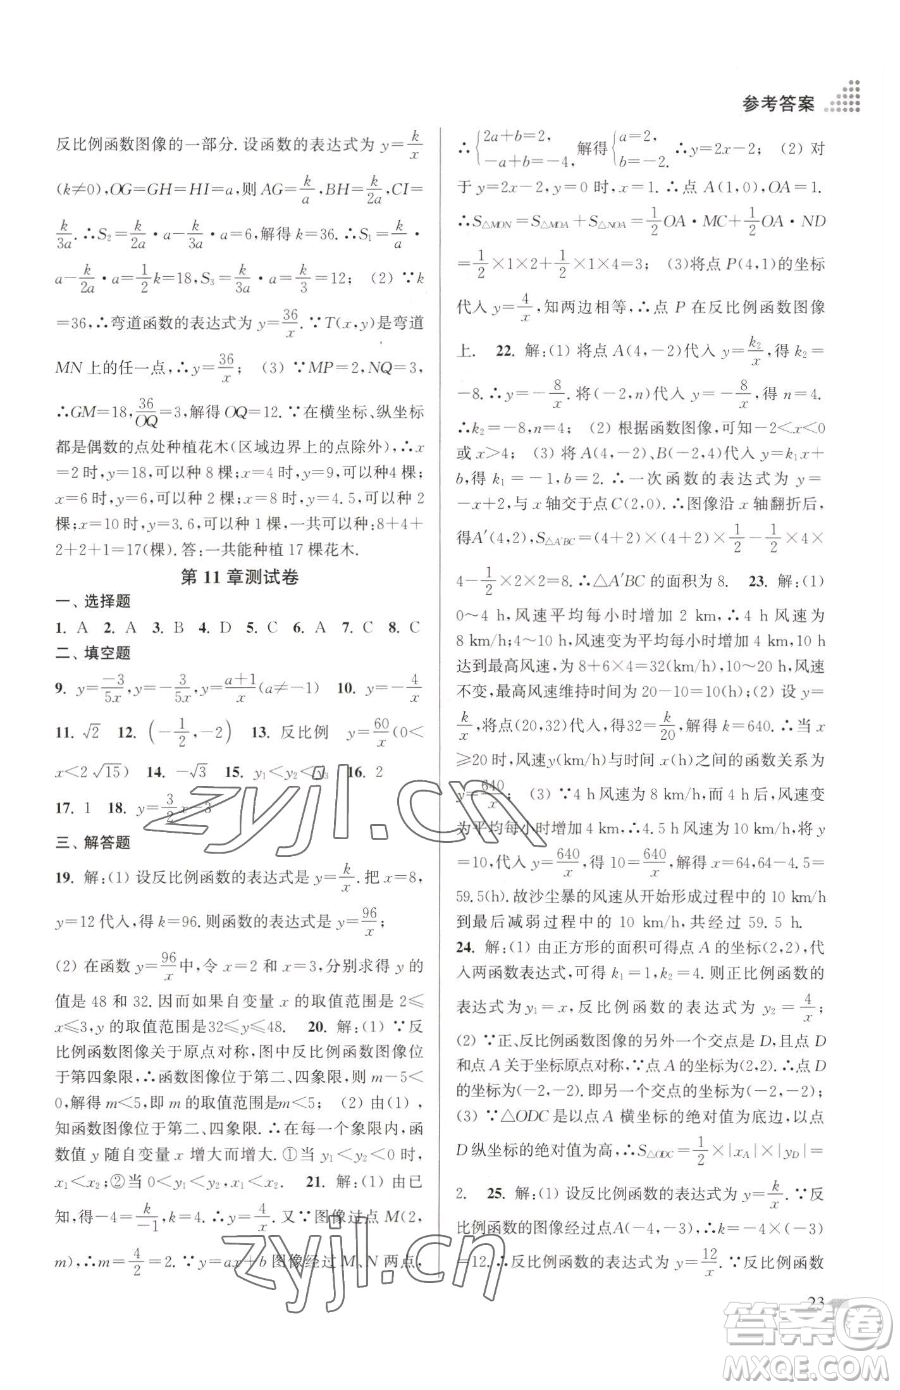 参考答案
反比例函数图像的一部分. 设函数的表达式为 y=k/x
(k≠0), OG=GH=HI=a, 则 AG=k/a, BH=k/2a, CI=
k/3a. ∴S₂=k/3a·a=1/3k=12, k=36. ∴S₁=k/a·
a-k/2a·a=1/2k=18, S₃=k/3a·a=k/3=12; (2) ∵k
=36, ∴弯道函数的表达式为 y=36/x. ∵T(x, y)是弯道
MN 上的任一点, ∴y=36/x; (3) ∵MP=2, NQ=3,
∴GM=18, 36/OQ=3, 解得 OQ=12. ∵在横坐标、纵坐标
都是偶数的点处种植花木(区域边界上的点除外), ∴x
=2 时, y=18, 可以种 8 棵; x=4 时, y=9, 可以种 4 棵;
x=6 时, y=6, 可以种 2 棵; x=8 时, y=4.5, 可以种 2
棵; x=10 时, y=3.6, 可以种 1 棵, 一共可以种: 8+4+
2+2+1=17(棵). 答: 一共能种植 17 棵花木.
第 11 章测试卷
一、选择题
1. A 2. A 3. B 4. D 5. C 6. A 7. C 8. C
二、填空题
9. y=-3/5x, y=-3/5x, y=a+1/x(a≠-1) 10. y=-4/x
11. √2 12. (-1/2, -2) 13. 反比例 y=60/x(0<
x<2√15) 14. -√3 15. y₁<y₂<y₃ 16. 2
17. 1 18. y=3/2x-3
三、解答题
19. 解: (1) 设反比例函数的表达式是 y=k/x. 把 x=8,
y=12 代入, 得 k=96. 则函数的表达式是 y=96/x;
(2) 在函数 y=96/x 中, 令 x=2 和 x=3, 分别求得 y 的
值是 48 和 32. 因而如果自变量 x 的取值范围是 2≤
x≤3, y 的取值范围是32≤y≤48. 20. 解: (1) ∵反
比例函数图像关于原点对称, 图中反比例函数图像位
于第四象限, ∴函数图像位于第二、四象限, 则 m-5<
0, 解得 m<5, 即 m 的取值范围是 m<5; (2) 由(1)
知函数图像位于第二、四象限. ∴在每个象限内, 函
数值 y 随自变量 x 增大而增大. ①当 y₁<y₂<0 时,
x₁<x₂; ②当 0<y₁<y₂, x₁<x₂. 21. 解: (1) 由已
知, 得-4=k/-1, k=4, ∴y=4/x. 又∵图像过点 M(2,
m), ∴m=4/2=2. ∵y=ax+b 图像经过 M、N 两点,
∴{2a+b=2, -a+b=-4, 解得{a=2, b=-2. ∴y=2x-2; (2) 对
于 y=2x-2, y=0 时, x=1, ∴点 A(1, 0), OA=1.
∴S△MON=S△MOA+S△NOA=1/2OA·MC+1/2OA·ND
=1/2×1×2+1/2×1×4=3; (3)将点 P(4,1)的坐标
代入 y=4/x, 知两边相等, ∴点 P 在反比例函数图像
上. 22. 解: (1) 将点 A(4, -2)代入 y=k₂/x, 得 k₂=
-8. ∴y=-8/x. 将(-2, n)代入 y=-8/x, 得 n=4.
∴k₂=-8, n=4; (2) 根据函数图像, 可知-2<x<0
或 x>4; (3) 将点 A(4, -2)、B(-2, 4)代入 y=k₁x
+b, 得 k₁=-1, b=2. ∴一次函数的表达式为 y=
-x+2, 与 x 轴交于点 C(2, 0). ∴图像沿 x 轴翻折后,
得A′(4, 2), S△A′BC=(4+2)×(4+2)×1/2-1/2×4×4
-1/2×2×2=8. ∴△A′BC 的面积为 8. 23. 解: (1)
0~4 h, 风速平均每小时增加 2 km, ∴4 h 时风速为
8 km/h; 4~10 h, 风速变为平均每小时增加 4 km, 10 h
达到最高风速, 为 8+6×4=32(km/h), 10~20 h, 风速
不变, 最高风速维持时间为 20-10=10(h); (2) 设 y=
k/x, 将点(20, 32)代入, 得32=k/20, 解得 k=640. ∴当 x
≥20 时, 风速y(km/h)与时间 x(h)之间的函数关系为
y=640/x; (3) ∵4 h 时风速为 8 km/h, 而 4 h后风速变
为平均每小时增加 4 km, ∴4.5 h 时风速为 10 km/h, 将 y
=10, 代入 y=640/x, 得 10=640/x, 解得 x=64, 64-4.5=
59.5(h). 故沙尘暴的风速从开始形成过程中的 10 km/h
到最后减弱过程中的 10 km/h, 共经过 59.5 h.
24. 解: (1) 由正方形的面积可得点 A 的坐标(2, 2), 代
入两函数表达式, 可求得 k₁=1, k₂=4. 则正比例函数的
表达式为 y₁=x, 反比例函数的表达式为 y₂=4/x;
(2) ∵正、反比例函数图像的另外一个交点是 D, 且点 D
和点 A 关于坐标原点对称, ∵点 A 的坐标为(2, 2), ∴点 D
的坐标为(-2, -2). 即另一个交点的坐标为(-2, -2);
(3) ∵△ODC 是以点 A 横坐标的绝对值为底边, 以点
D 纵坐标的绝对值为高, ∴S△ODC=1/2×|xA|×|yD|=
2. 25. 解: (1) 设反比例函数的表达式为 y=k/x. ∵反
比例函数的图像经过点A(-4, -3), ∴k=-4×(-3)
=12. ∴反比例函数的表达式为 y=12/x. ∵反比例函数
23
zyjl.cn
zyjl.cn
答案圈
MXQE.COM